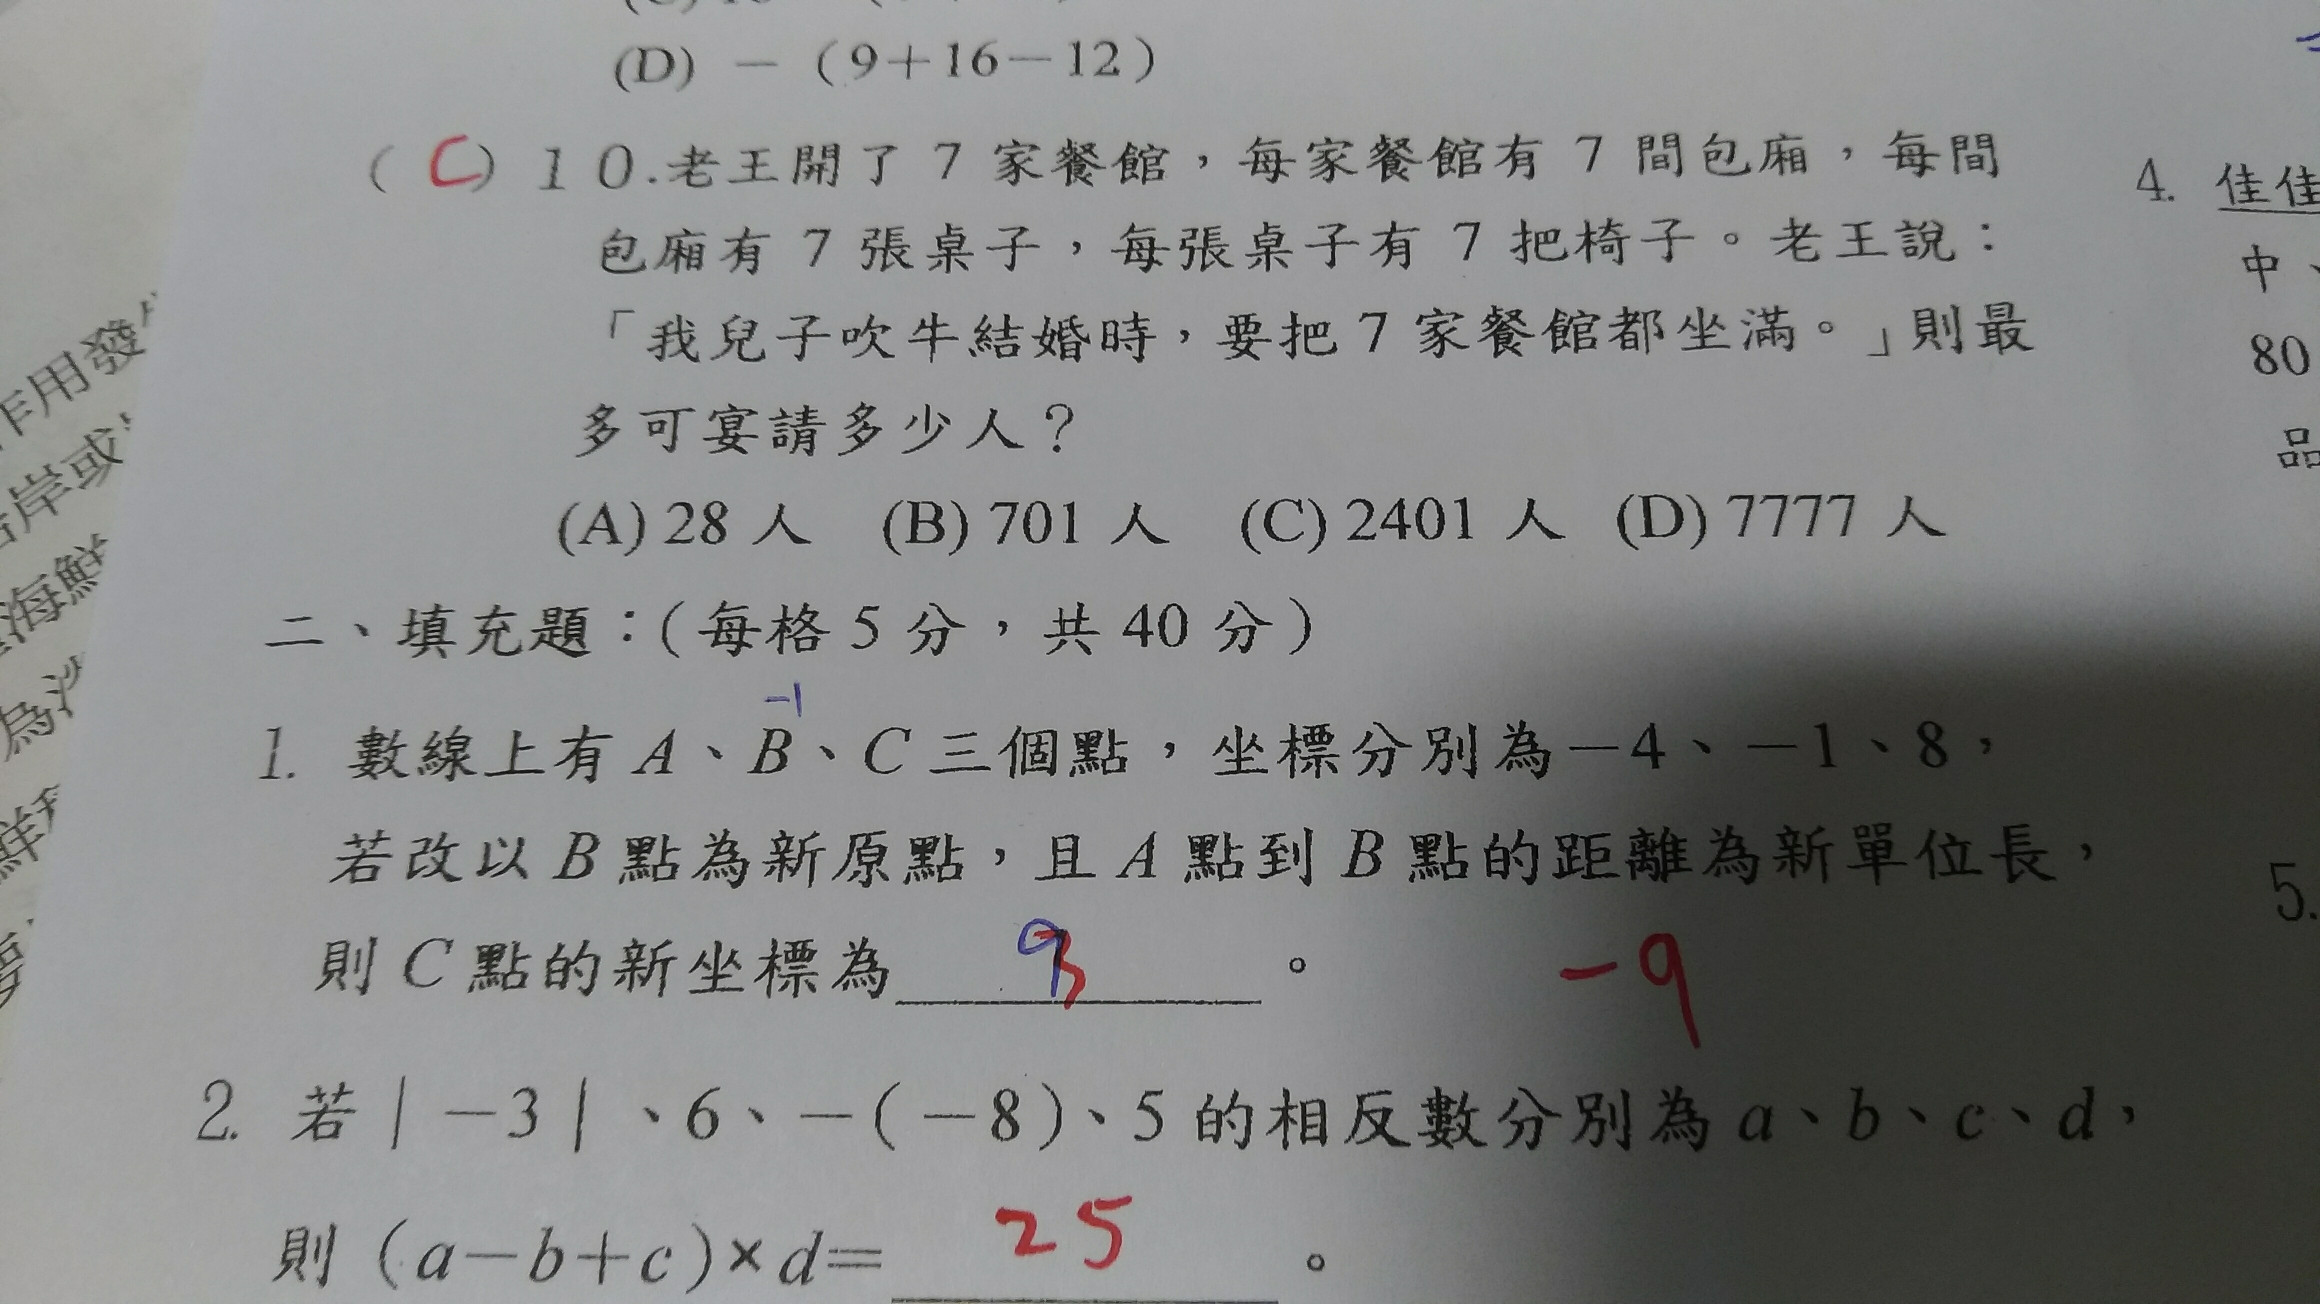 (D) －（9＋16－12）
（ C ）10.老王開了 7 家餐館，每家餐館有 7 間包廂，每間
包廂有 7 張桌子，每張桌子有 7 把椅子。老王說：
「我兒子吹牛結婚時，要把 7 家餐館都坐滿。」則最
多可宴請多少人？
(A) 28 人 (B) 701 人 (C) 2401 人 (D) 7777 人
二、填充題：（每格 5 分，共 40 分）
-1
1. 數線上有 A、B、C 三個點，坐標分別為－4、－1、8，
若改以 B 點為新原點，且 A 點到 B 點的距離為新單位長，
則 C 點的新坐標為 3 。 -9
2. 若｜－3｜、6、－(－8)、5 的相反數分別為 a、b、c、d，
則（a－b＋c）×d＝ 25 。
4. 佳佳
中、
80
品
5.
作用發
岸或
海鮮
為沙
鮮